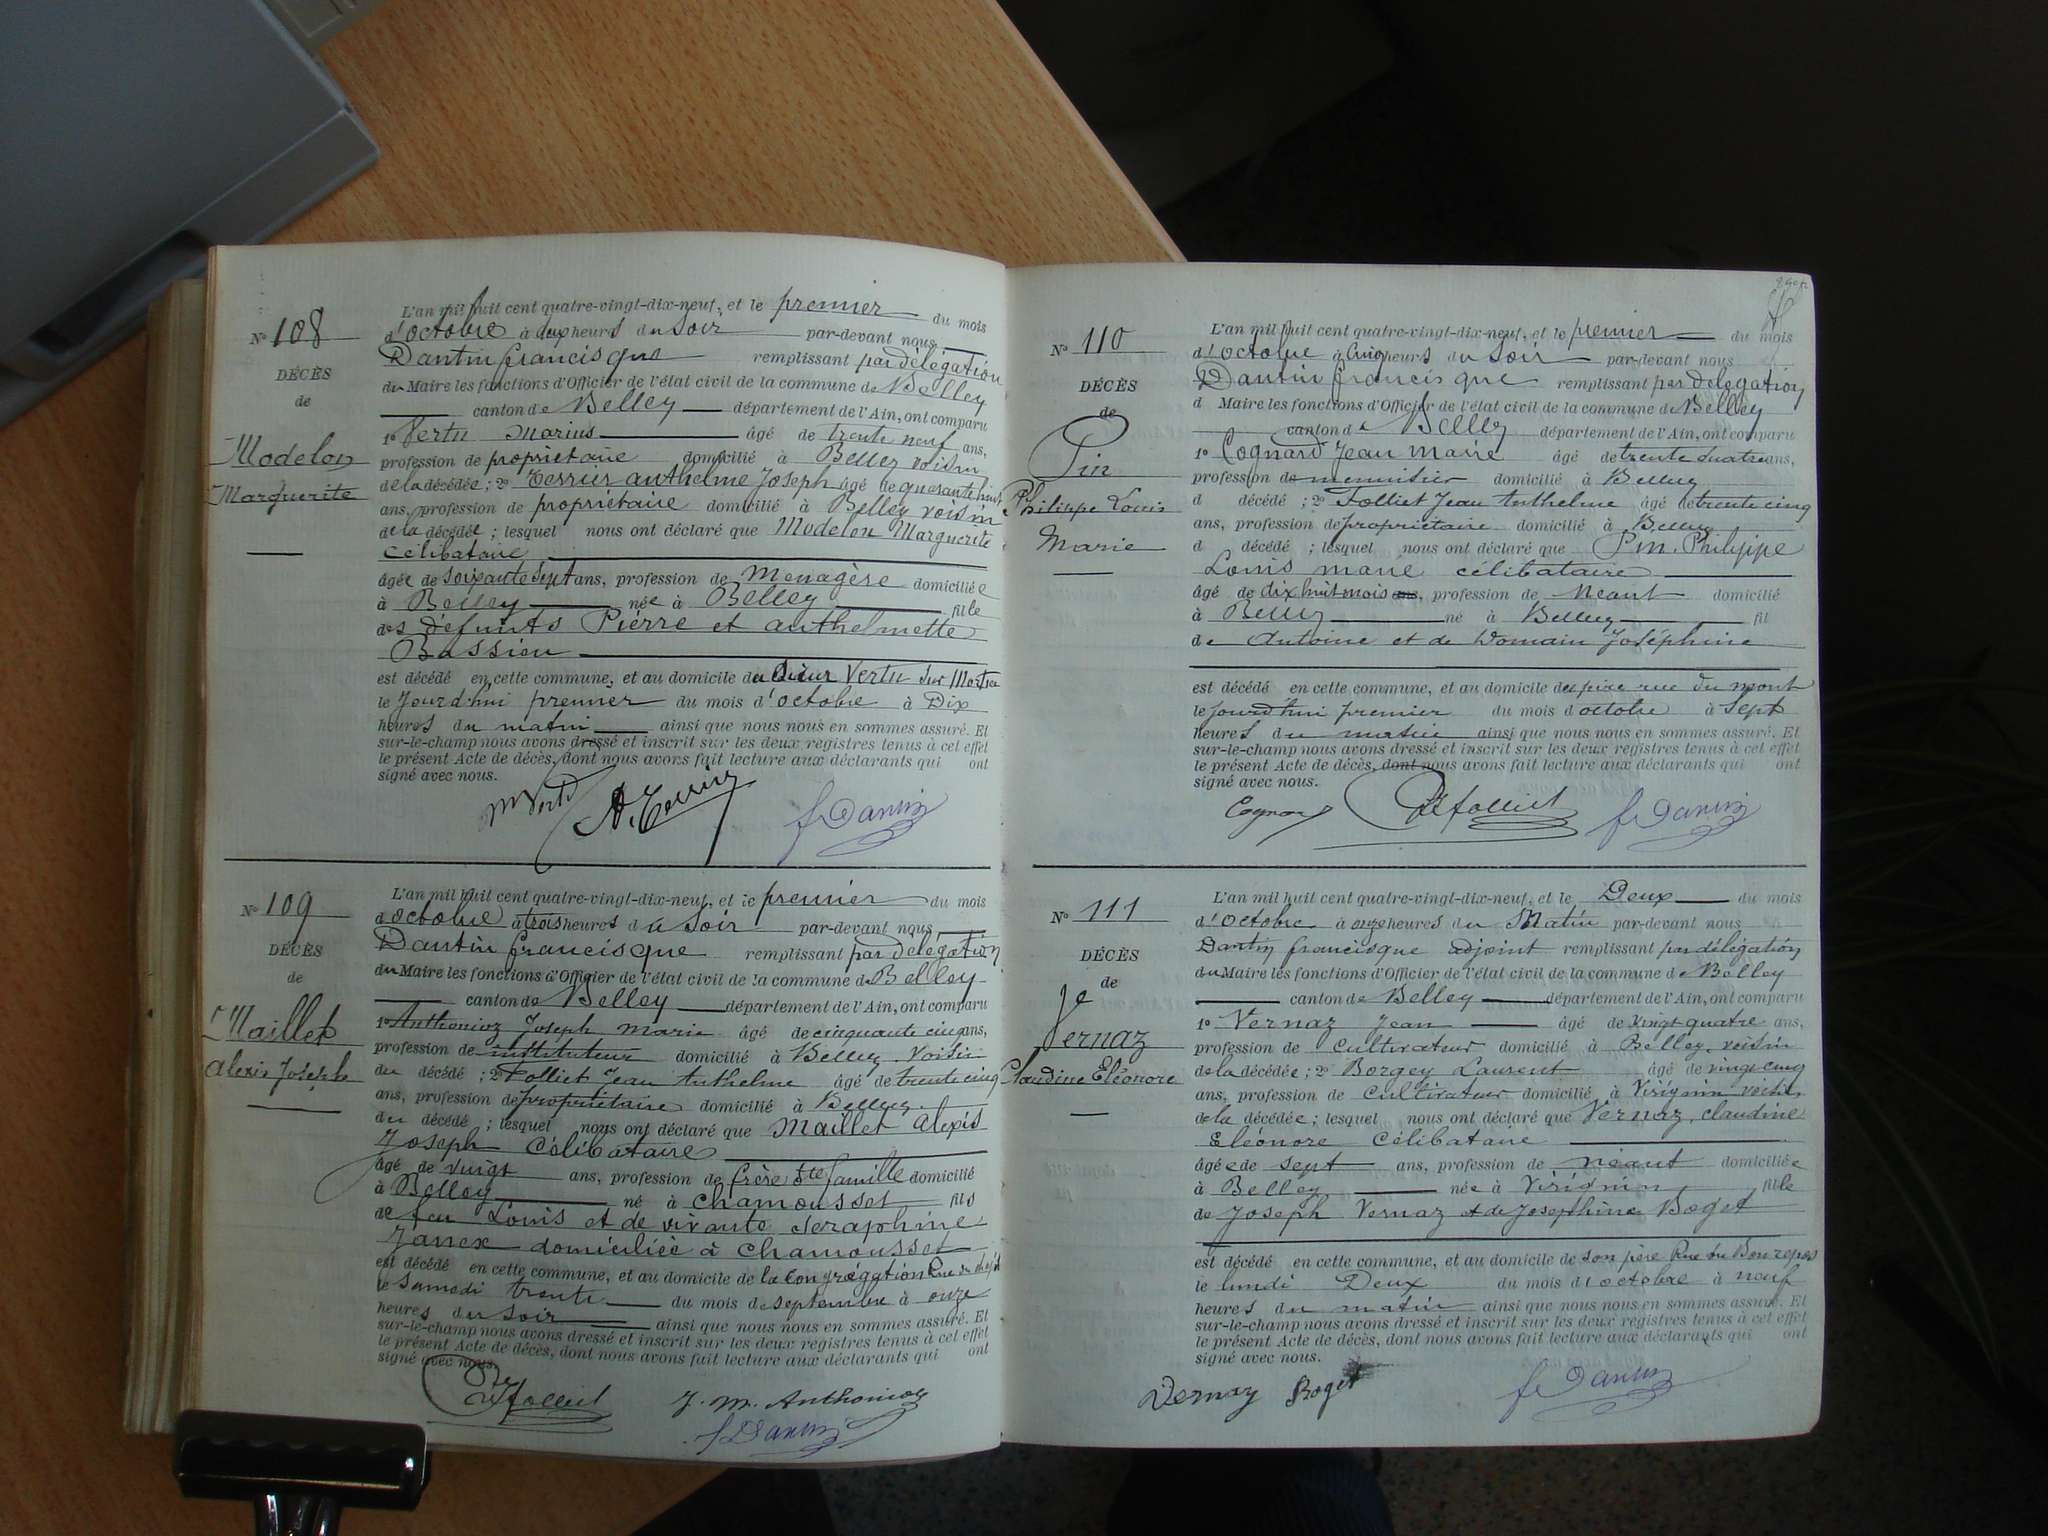 L'an mil huit cent quatre-vingt-dix-neuf, et le premier du mois
No 108 d'octobre à deux heures du Soir par-devant nous
Dantin francisque remplissant par délégation
DÉCÈS
du Maire les fonctions d'Officier de l'état civil de la commune de Belley
de
canton de Belley département de l'Ain, ont comparu
1o Vertu Marius âgé de trente neuf ans,
Modelon
profession de propriétaire domicilié à Belley voisin
de la décédée ; 2o Terrier anthelme Joseph âgé de quarante huit
Marguerite
ans, profession de propriétaire domicilié à Belley voisin
de la décédée ; lesquels nous ont déclaré que Modelon Marguerite
célibataire
âgée de soixante sept ans, profession de Menagère domiciliée
à Belley née à Belley fille
des défunts Pierre et anthelmette
Bassieu
est décédé en cette commune, et au domicile du sieur Vertu sur
le Jourd'hui premier du mois d'octobre à Dix
heures du matin ainsi que nous nous en sommes assuré. Et
sur-le-champ nous avons dressé et inscrit sur les deux registres tenus à cet effet
le présent Acte de décès, dont nous avons fait lecture aux déclarants qui ont
signé avec nous.
M Vertu A. Terrier f Dantin
L'an mil huit cent quatre-vingt-dix-neuf, et le premier du mois
No 109 d'octobre à trois heures du Soir par-devant nous
Dantin francisque remplissant par délégation
DÉCÈS
du Maire les fonctions d'Officier de l'état civil de la commune de Belley
de
canton de Belley département de l'Ain, ont comparu
Maillet
1o Anthonioz Joseph marie âgé de cinquante cinq ans,
profession de instituteur domicilié à Belley voisin
Alexis Joseph
du décédé ; 2o Folliet Jean Anthelme âgé de trente cinq
ans, profession de propriétaire domicilié à Belley
du décédé ; lesquels nous ont déclaré que Maillet Alexis
Joseph Célibataire
âgé de vingt ans, profession de frère Ste famille domicilié
à Belley né à Chamousset fils
de feu Louis et de vivante Seraphine
Janex domiciliée à Chamousset
est décédé en cette commune, et au domicile de la Congrégation Rue du
le Samedi trente du mois de septembre à onze
heures du soir ainsi que nous nous en sommes assuré. Et
sur-le-champ nous avons dressé et inscrit sur les deux registres tenus à cet effet
le présent Acte de décès, dont nous avons fait lecture aux déclarants qui ont
signé avec nous.
folliet J. M. Anthonioz
f Dantin
L'an mil huit cent quatre-vingt-dix-neuf, et le premier du mois
No 110 d'octobre à cinq heures du Soir par-devant nous
Dantin francisque remplissant par délégation
DÉCÈS
d Maire les fonctions d'Officier de l'état civil de la commune de Belley
de
canton de Belley département de l'Ain, ont comparu
Pin
1o Cognard Jean Marie âgé de trente quatre ans,
profession de menuisier domicilié à Belley
Philippe Louis
d décédé ; 2o Folliet Jean Anthelme âgé de trente cinq
ans, profession de propriétaire domicilié à Belley
Marie
d décédé ; lesquel nous ont déclaré que Pin Philippe
Louis marie célibataire
âgé de dix huit mois ans, profession de Néant domicilié
à Belley né à Belley fil
de Antoine et de Domain Joséphine
est décédé en cette commune, et au domicile de père rue du mont
le jourd'hui premier du mois d'octobre à sept
heures du matin ainsi que nous nous en sommes assuré. Et
sur-le-champ nous avons dressé et inscrit sur les deux registres tenus à cet effet
le présent Acte de décès, dont nous avons fait lecture aux déclarants qui ont
signé avec nous.
Cognard folliet f Dantin
L'an mil huit cent quatre-vingt-dix-neuf, et le Deux du mois
No 111 d'Octobre à onze heures du Matin par-devant nous
Dantin francisque adjoint remplissant par délégation
DÉCÈS
du Maire les fonctions d'Officier de l'état civil de la commune de Belley
de
canton de Belley département de l'Ain, ont comparu
Vernaz
1o Vernaz Jean âgé de vingt quatre ans,
profession de cultivateur domicilié à Belley voisin
Claudine Eléonore
de la décédée ; 2o Borgey Laurent âgé de vingt cinq
ans, profession de cultivateur domicilié à Virignin voisin
de la décédée ; lesquel nous ont déclaré que Vernaz, claudine
Eléonore célibataire
âgée de sept ans, profession de néant domiciliée
à Belley née à Virignin fille
de Joseph Vernaz et de Joséphine Boget
est décédé en cette commune, et au domicile de son père Rue du Bon repos
le lundi Deux du mois d'octobre à neuf
heures du matin ainsi que nous nous en sommes assuré. Et
sur-le-champ nous avons dressé et inscrit sur les deux registres tenus à cet effet
le présent Acte de décès, dont nous avons fait lecture aux déclarants qui ont
signé avec nous.
Vernay Boget f Dantin